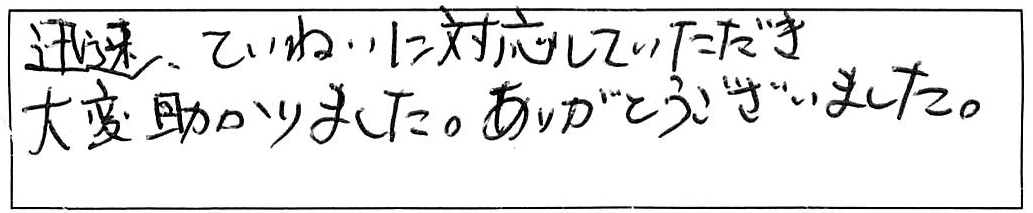 迅速、ていねいに対応していただき
大変助かりました。ありがとうございました。